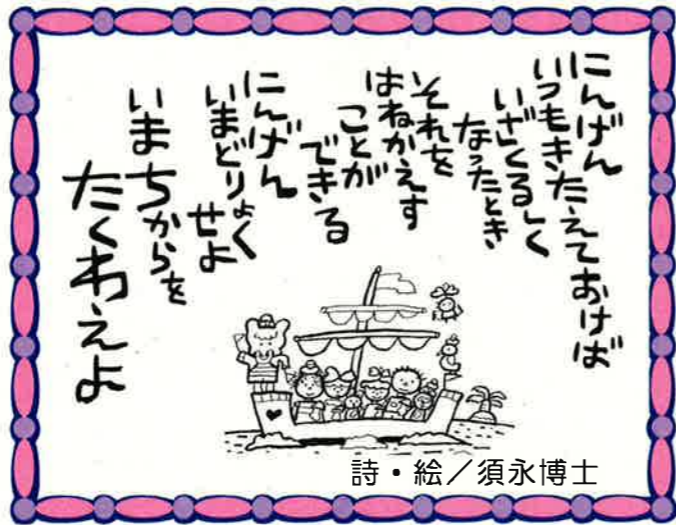 にんげん
いつもきたえておけば
いざくるしく
なったとき
それを
はねかえす
ことが
できる
にんげん
いまどりょく
せよ
いまちからを
たくわえよ
詩・絵／須永博士